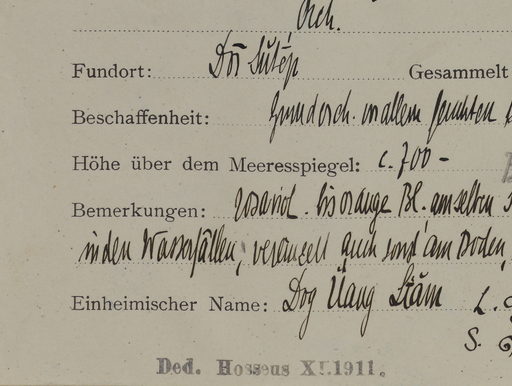 Orch.
Fundort: Doi Sutēp Gesammelt
Beschaffenheit: Grundorch. vor allem feuchten
Höhe über dem Meeresspiegel: c. 700 –
Bemerkungen: rosaviol. bis orange Bl. am selben
in den Wasserfällen, vereinzelt auch sonst am Boden,
Einheimischer Name: Dog Üang Stām L.
S.
Ded. Hosseus XI.1911.